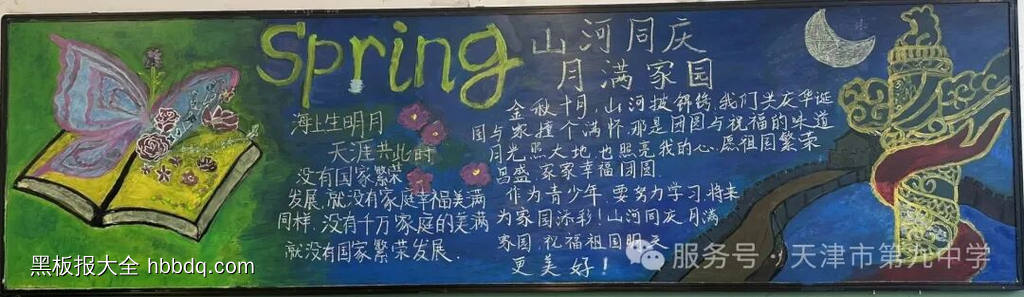 Spring
山河同庆
月满家园
海上生明月
天涯共此时
没有国家繁荣
发展,就没有家庭幸福美满
同样,没有千万家庭的美满
就没有国家繁荣发展.
金秋十月,山河披锦绣,我们共庆华诞
国与家撞个满怀,那是团圆与祝福的味道
月光照大地,也照亮我的心,愿祖国繁荣
昌盛,家家幸福团圆.
作为青少年,要努力学习,将来
为家国添彩!山河同庆,月满
家园,祝福祖国明天
更美好!
黑板报大全 hbbdq.com
服务号·天津市第九中学